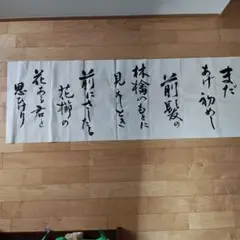 まだ
あげ初めし
前髪の
林檎のもとに
見えしとき
前にさしたる
花櫛の
花ある君と
思ひけり